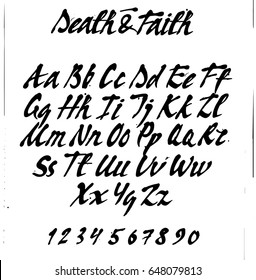 Death & Faith
Aa Bb Cc Dd Ee Ff
Gg Hh Ii Jj Kk Ll
Mm Nn Oo Pp Qq Rr
Ss Tt Uu Vv Ww
Xx Yy Zz
1 2 3 4 5 6 7 8 9 0
shutterstock.com · 648079813